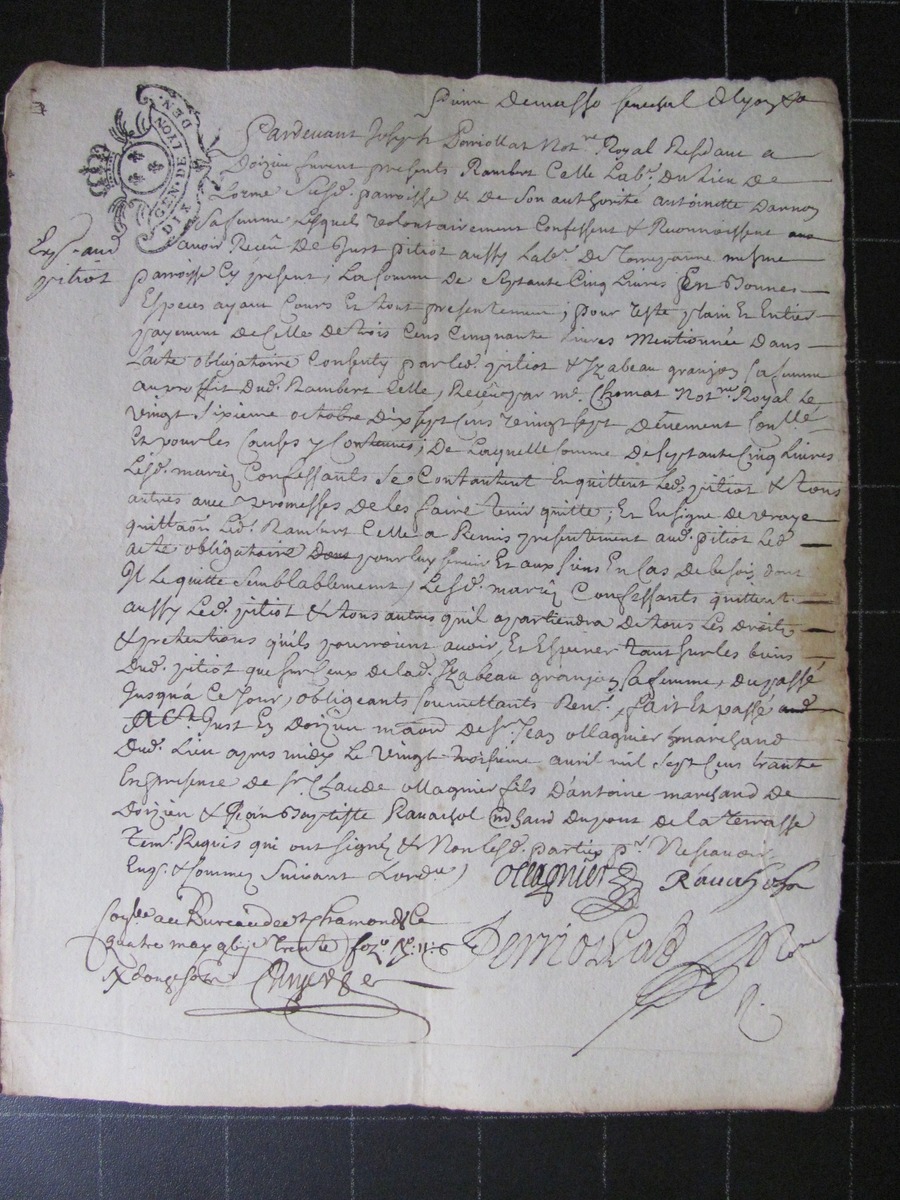 Pierre Demasso senechal de lyon &a
GEN. DE LYON
DIX DEN.
Pardevant Joseph Perriollat Not.re Royal Residant a
Doizieu furent presents Rambert Celle Lab.r, du lieu de
Lorme Susd. parroisse & de Son authorité antoinette Darnon
Sa femme Lesquels volontairement Confessent & Reconnoissent
avoir Receu De Just pitiot aussy Lab.r De mesme
Exp. aud
pitiot
parroisse Cy present; La Somme De Septante Cinq Livres En Bonnes
Especes ayant Cours Et tout presentement; pour reste plain Et Entier
payement De Celle De trois Cens Cinquante Livres Mentionnée Dans
Lacte obligatoire Consenty par led. pitiot & Izabeau granjon Sa femme
au proffit Dud. Rambert Celle, Receu par me. Thomas Not.re Royal Le
vingt Sixieme octobre Dix Sept Cens vingt Sept Deuement Conllé
Et pour les Causes y Contenues; De Laquelle Somme De Septante Cinq Livres
Lesd. mariéz Confessants Se Contantent En quittent Led. pitiot & tous
autres avec promesses de les faire tenir quitte; Et En Signe De vraye
quittaon Led. Rambert Celle a Remis presentement aud. pitiot Led
acte obligatoire pour luy servir Et aux Siens En Cas De besoin, dont
Il Le quitte Semblablement, Lesd. mariéz Confessants quittent
aussy Led. pitiot & tous autres quil apartiendra De tous Les Droits
& pretentions quils pourroient avoir, Et Esperer tant Sur les biens
Dud. pitiot que Sur Ceux de lad. Izabeau granjon Sa femme, Du passé
Jusqua Ce Jour, obligeants Soumettants Ren.t, fait Et passé
Just En Doizieu maon De S.r Jean ollagnier marchand
Dud. Lieu apres midy Le vingt troisieme avril mil Sept Cens trante
En presense de S.r Claude ollagnier fils D'antoine marchand de
Doizieu & Jean Baptiste Ravachol mchand Du pont de la terrasse
Tem. Requis qui ont Signéz & Non lesd. parties p.r Ne Scavoir
Enq. & Sommez Suivant Lord.ce
Ollagnier Ravachol
Con.llé au Bureau de St Chamond le
quatre may trente fo 20
Perriollat No.re